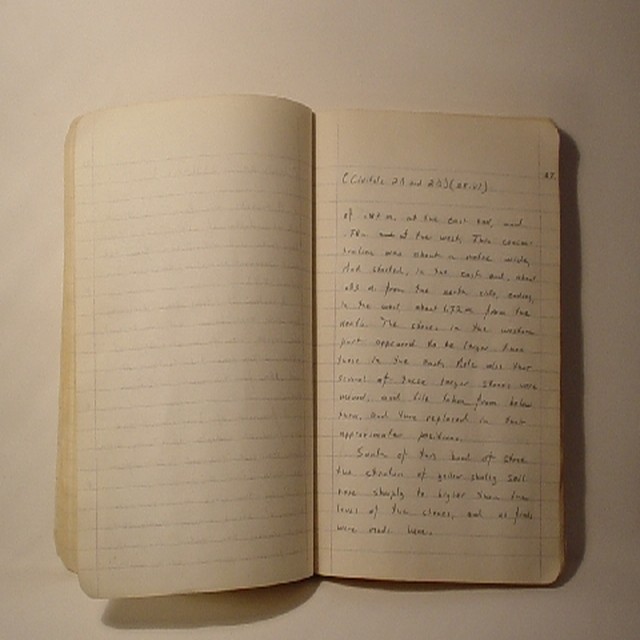 (Civitale 2B and 2D)
of m. at the east end, and
m at the west. This concen-
tration was about a metre wide,
and started, in the east end, about
m from the north side, ending,
in the west, about m from the
north. The stones in the western
part appeared to be larger than
those in the east. Note also that
several of these larger stones were
moved, and fill taken from below
them, and then replaced in their
approximate positions.
South of this band of stone
the stratum of yellow shaley soil
rose sharply to higher than the
level of the stones, and no finds
were made here.